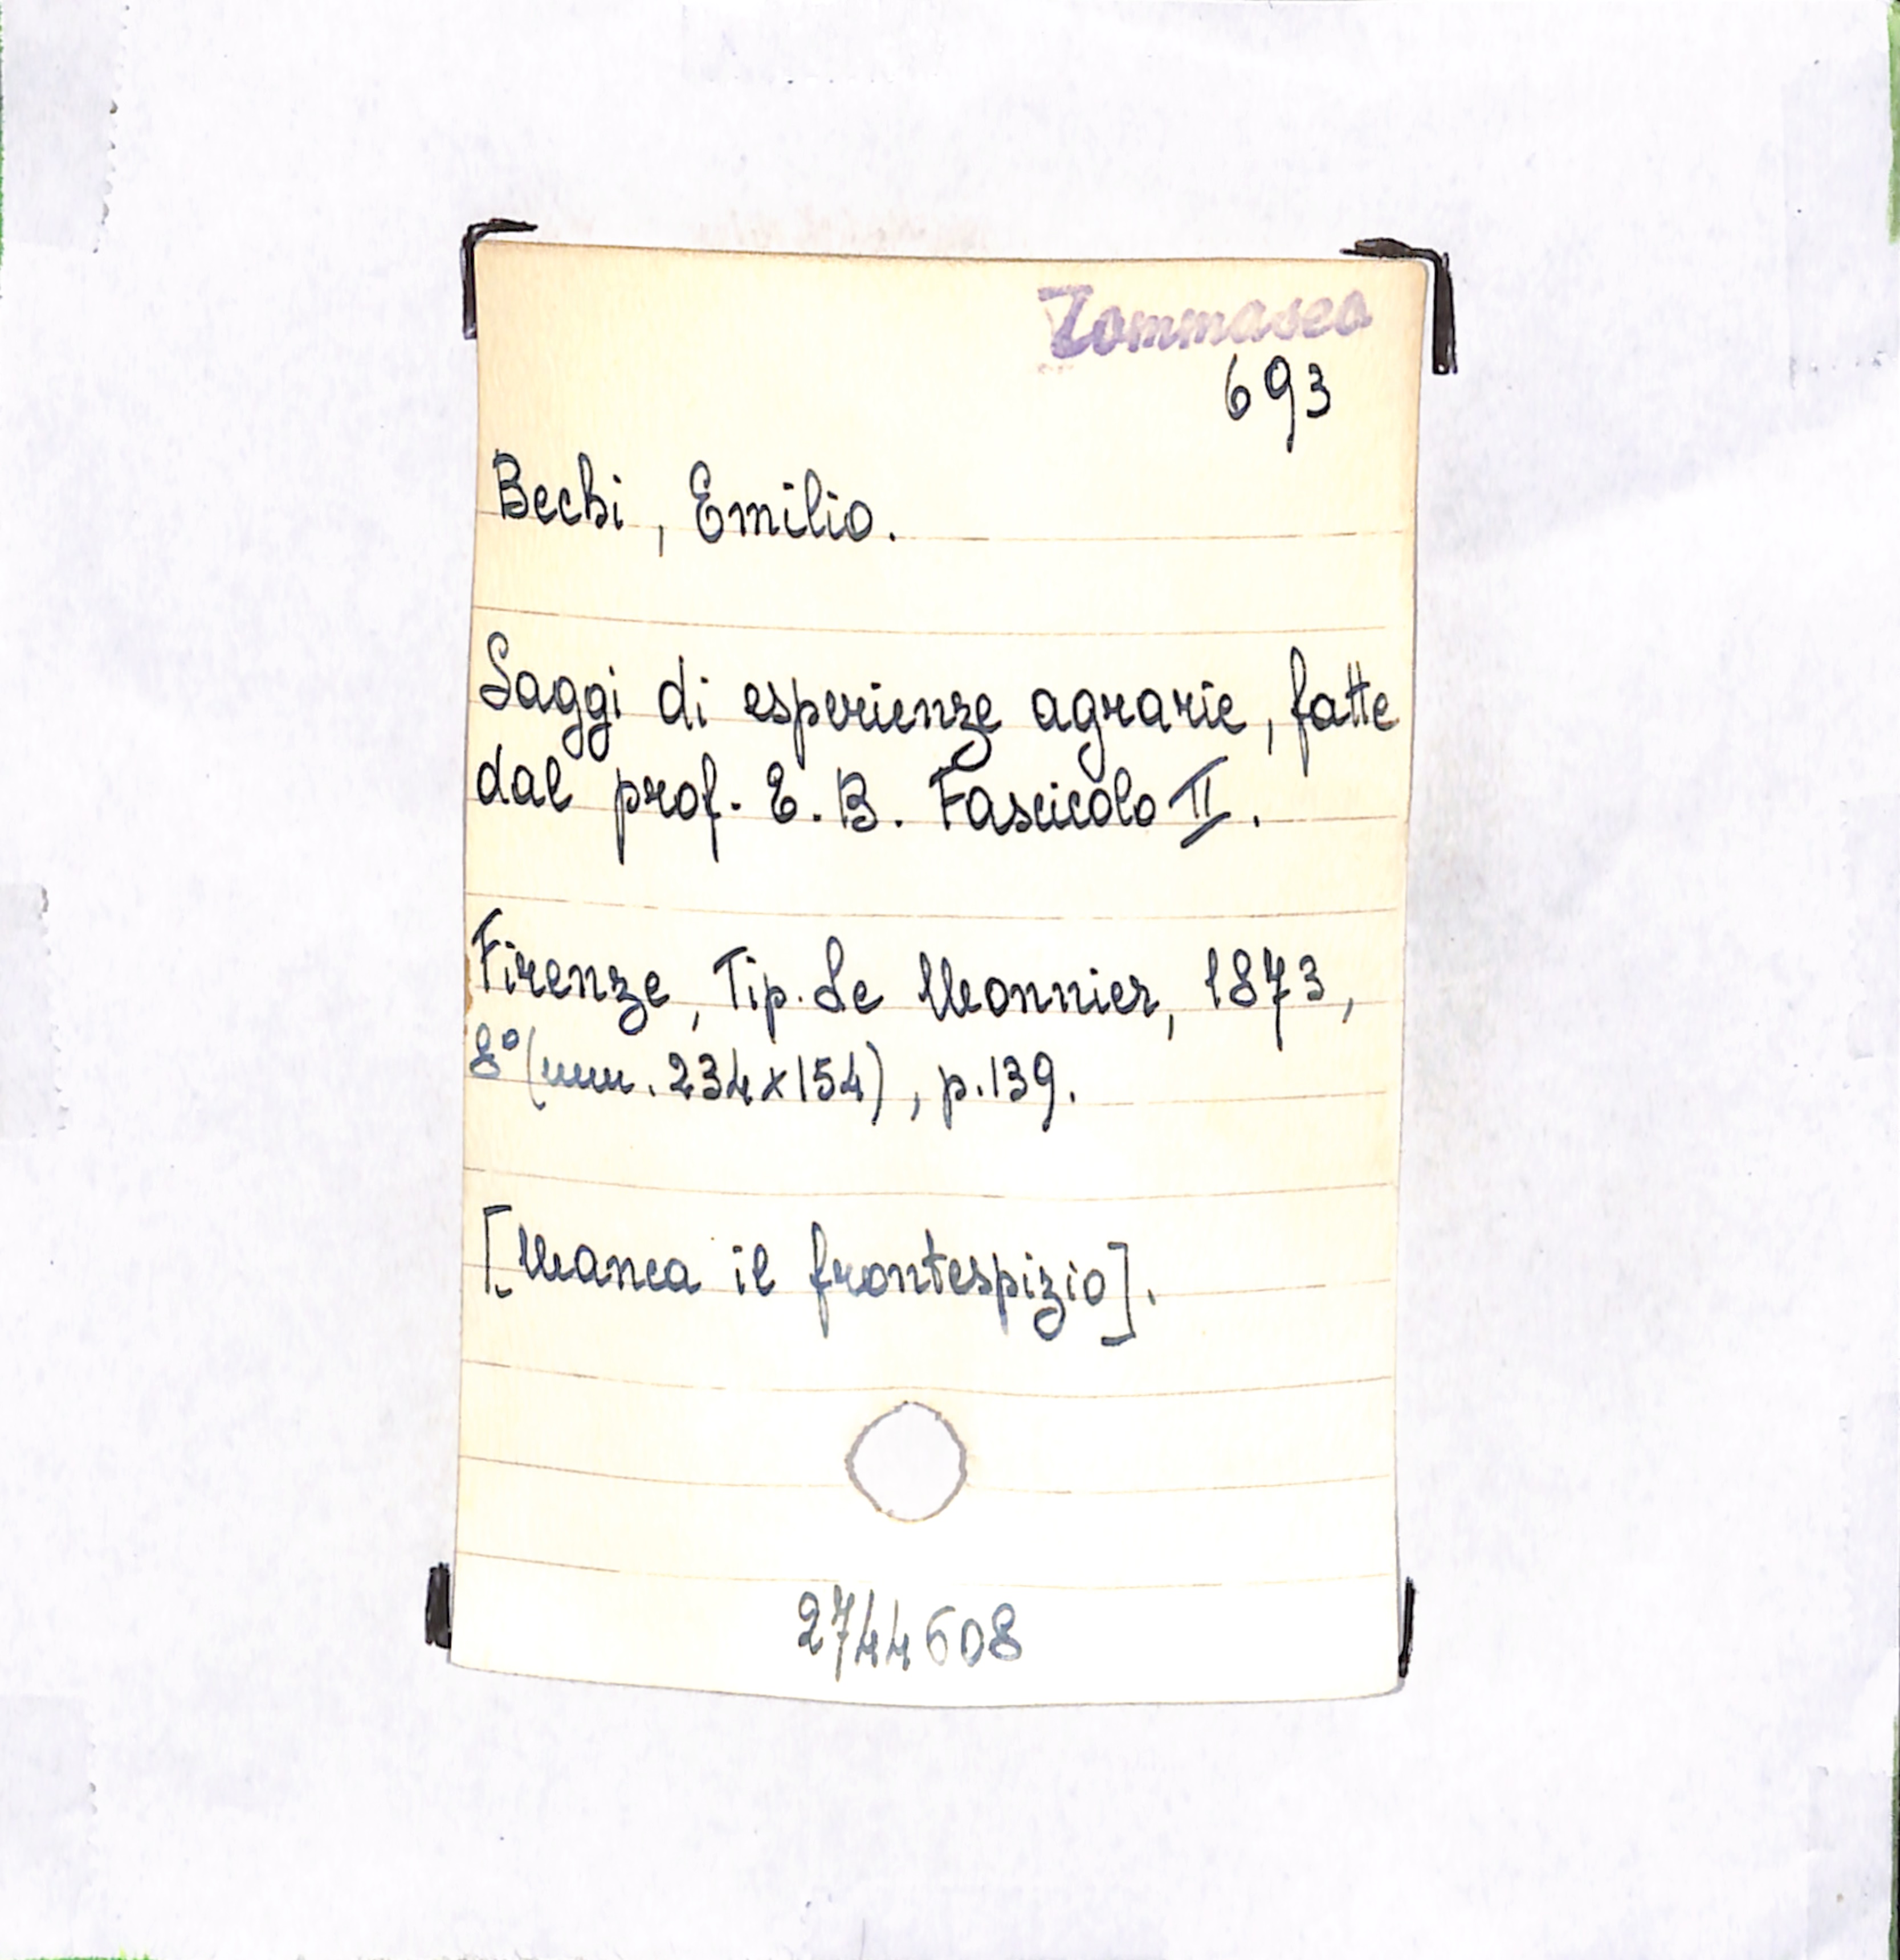 Tommaseo
693
Bechi, Emilio.
Saggi di esperienze agrarie, fatte
dal prof. E. B. Fascicolo II.
Firenze, Tip. Le Monnier, 1873,
8° (mm. 234x154), p. 139.
[Manca il frontespizio].
2744608